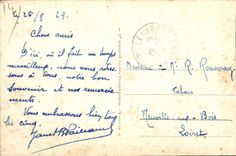 le 28/8 29.
Chers amis
D'ici où il fait un temps
merveilleux, nous vous adres-
sons à tous, notre bon
souvenir et nos remercie-
ments.
Vous embrassons bien tous
les cinq.
Monsieur & Mme R. Rousseau
Tabacs
Neuville-aux-Bois
Loiret